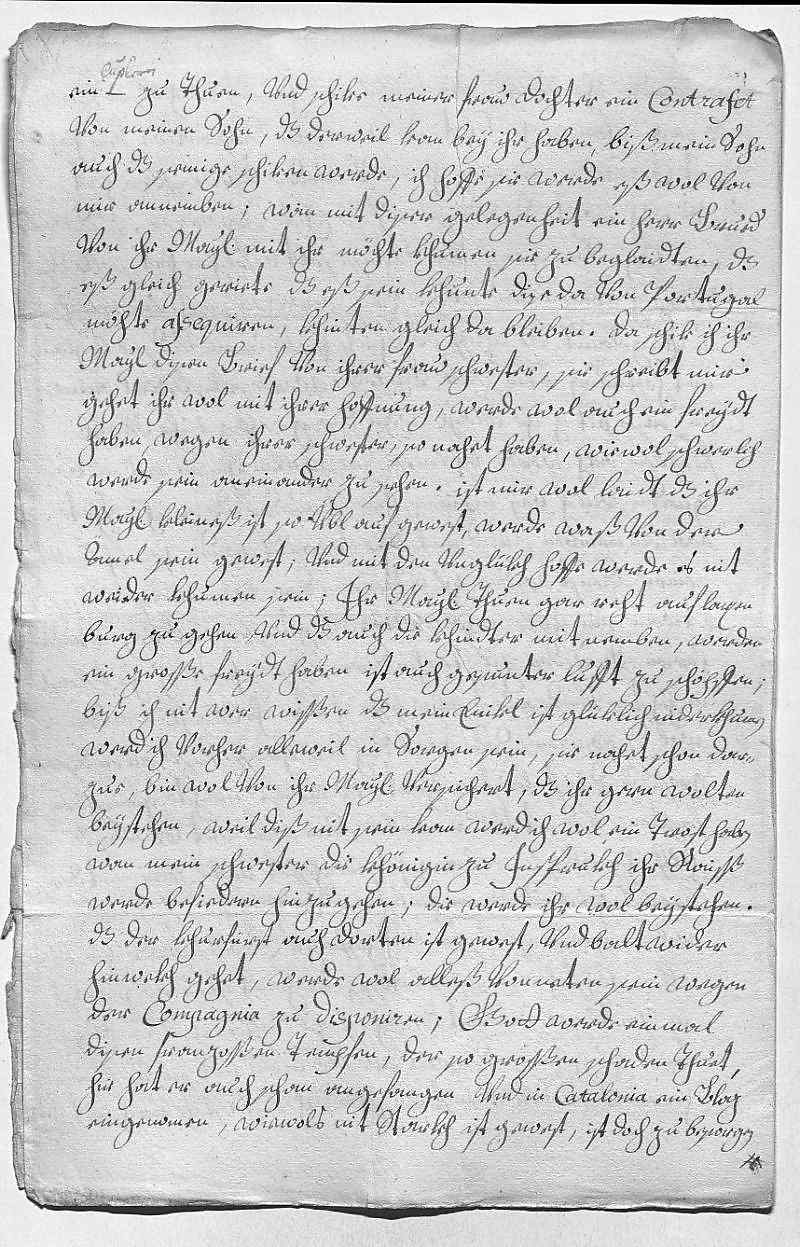 ein zu Thuen, Vnd schike meiner frau dochter ein Contrafet
Von meinen Sohn, dz derweil kan bey ihr haben, biß mein Sohn
auch dz seinige schiken werde, ich hoffe sie werde eß wol Von
mir anemben; wan mit diser gelegenheit ein herr Brued
Von ihr Mayl: mit ihr möchte khumen sie zu beglaidten, dz
eß gleich geriete dz eß sein khunte dise da Von Portugal
möhte assequiren, khinten gleich da bleiben. da schik ich ihr
Mayl disen Brief Von ihrer frau schwester, sie schreibt mir
gehet ihr wol mit ihrer hoffnung, werde wol auch ein freydt
haben wegen ihrer schwester, so nahet haben, wiewol schwerlich
werde sein aneinander zu sehen. ist mir wol laidt dz ihr
Mayl: kleineß ist so Vbl auf gewest, werde waß Von der
Amel sein gewest; Vnd mit den Vnglükh hoffe werde es nit
weider khumen sein; Ihr Mayl: Thuen gar reht auf laxen
burg zu gehen Vnd dz auch die khindter mit nemben, werden
ein grosse freydt haben ist auch gesunter lufft zu schöpffen;
biß ich nit wer wissen dz mein Enikl ist glüklich niderkhumen
werd ich Vorher alleweil in Sorgen sein, sie nahet schon dar
zue, bin wol Von ihr Mayl: Versichert, dz ihr gern wolten
beystehen, weil diß nit sein kan werd ich wol ein Trost haben
wan mein schwester die khönigin zu Insprukh ihr Raiß
werde befiedern hinzugehen; die werde ihr wol beystehen.
dz der khurfürst auch dorten ist gewest, Vnd balt wider
hinwekh gehet, werde wol alleß Vonneten sein wegen
der Compagnia zu disponiren; Gott werde ein mal
disen franzossen Tempfen, der so grossen schaden Thuet,
hie hat er auch schon angefangen Vnd in Catalonia ein Blaz
eingenomen, wiewols nit Starkh ist gewest, ist doch zu besorgen